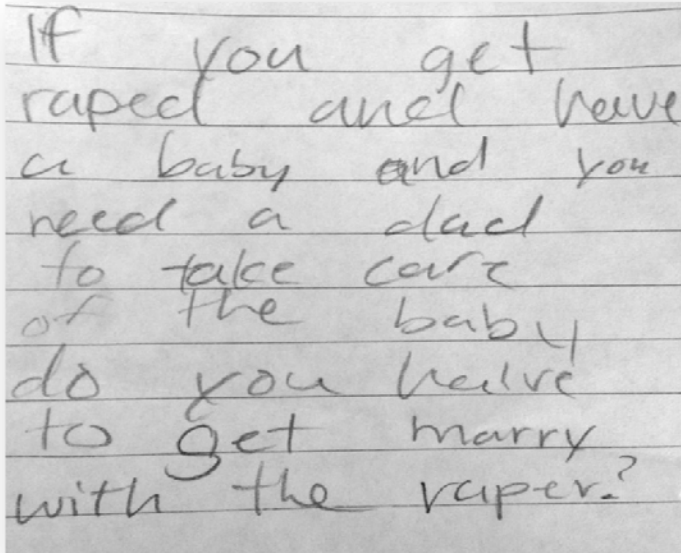 If you get
raped and have
a baby and you
need a dad
to take care
of the baby
do you haive
to get marry
with the raper?